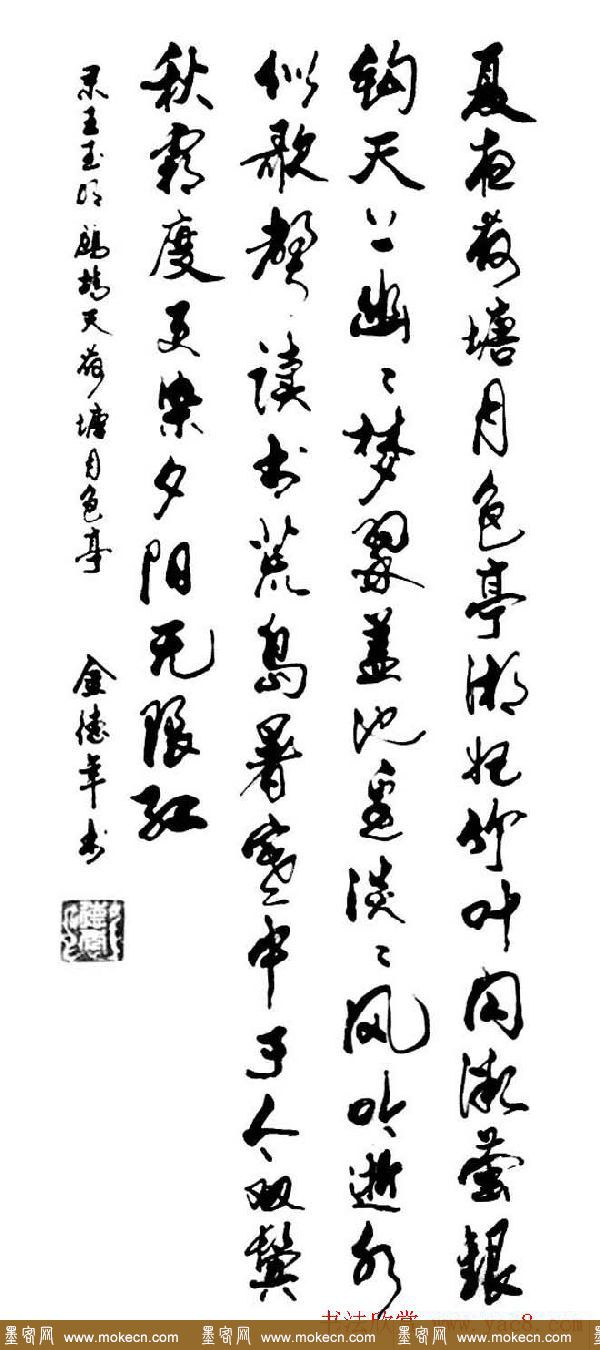 夏夜荷塘月色亭湘妃竹叶闪萤银
钩天上幽幽梦翠盖池边淡淡风吟逝水
似歌声读书荒岛暑寒中于今双鬓
秋霜度更染夕阳无限红
录王玉明鹧鸪天荷塘月色亭 金德年书
书法欣赏 www.yac8.com
墨客网 www.mokecn.com 墨客网 www.mokecn.com 墨客网 www.mokecn.com